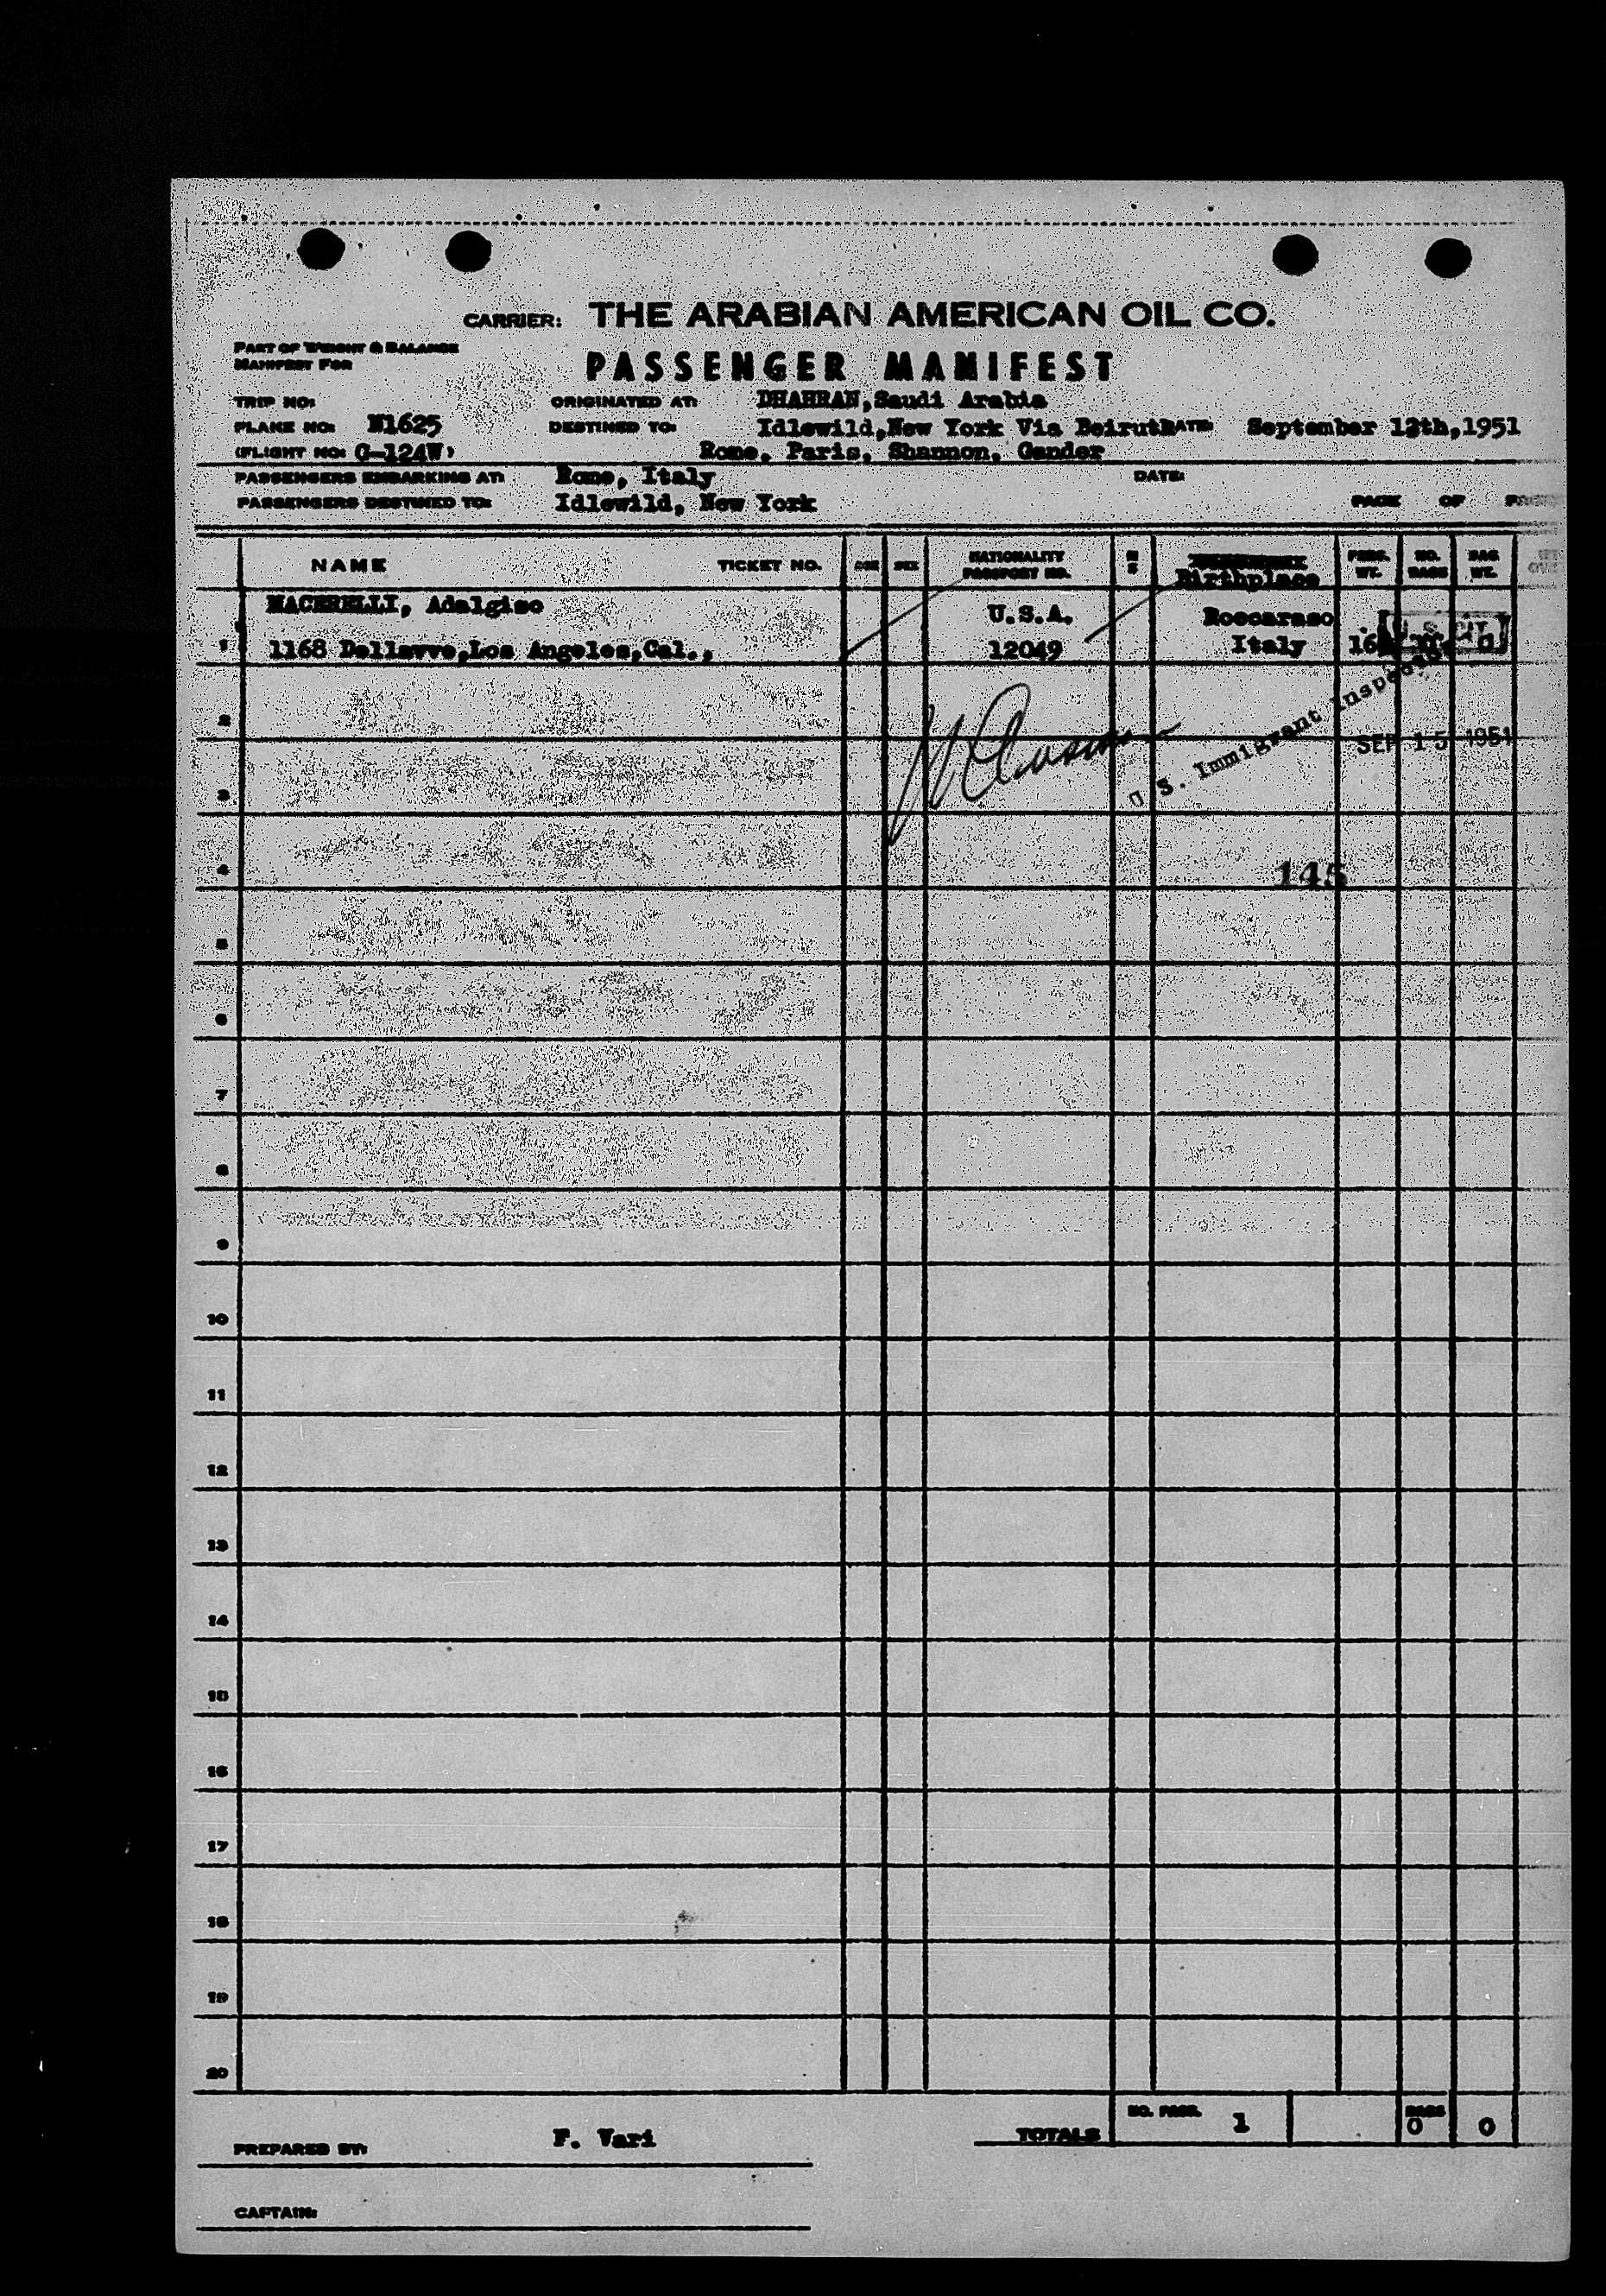 CARRIER: THE ARABIAN AMERICAN OIL CO.
PART OF WEIGHT & BALANCE
MANIFEST FOR
PASSENGER MANIFEST
TRIP NO: ORIGINATED AT: DHAHRAN, Saudi Arabia
PLANE NO: N1625 DESTINED TO: Idlewild, New York Via Beirut DATE: September 12th, 1951
(FLIGHT NO: G-124W) Rome, Paris, Shannon, Gander
PASSENGERS EMBARKING AT: Rome, Italy DATE:
PASSENGERS DESTINED TO: Idlewild, New York PAGE OF
NAME TICKET NO. AGE SEX NATIONALITY PASSPORT NO. M S Birthplace PASS. WT. NO. BAGS BAG WT.
MACERELLI, Adalgiso U.S.A. Roccaraso
1 1168 Dellavve, Los Angeles, Cal., 12049 Italy
U.S. Immigrant Inspector
2 SEP 15 1951
3
4 145
5
6
7
8
9
10
11
12
13
14
15
16
17
18
19
20
NO. PASS. 1 BAGS 0 0
TOTALS
PREPARED BY: F. Vari
CAPTAIN: